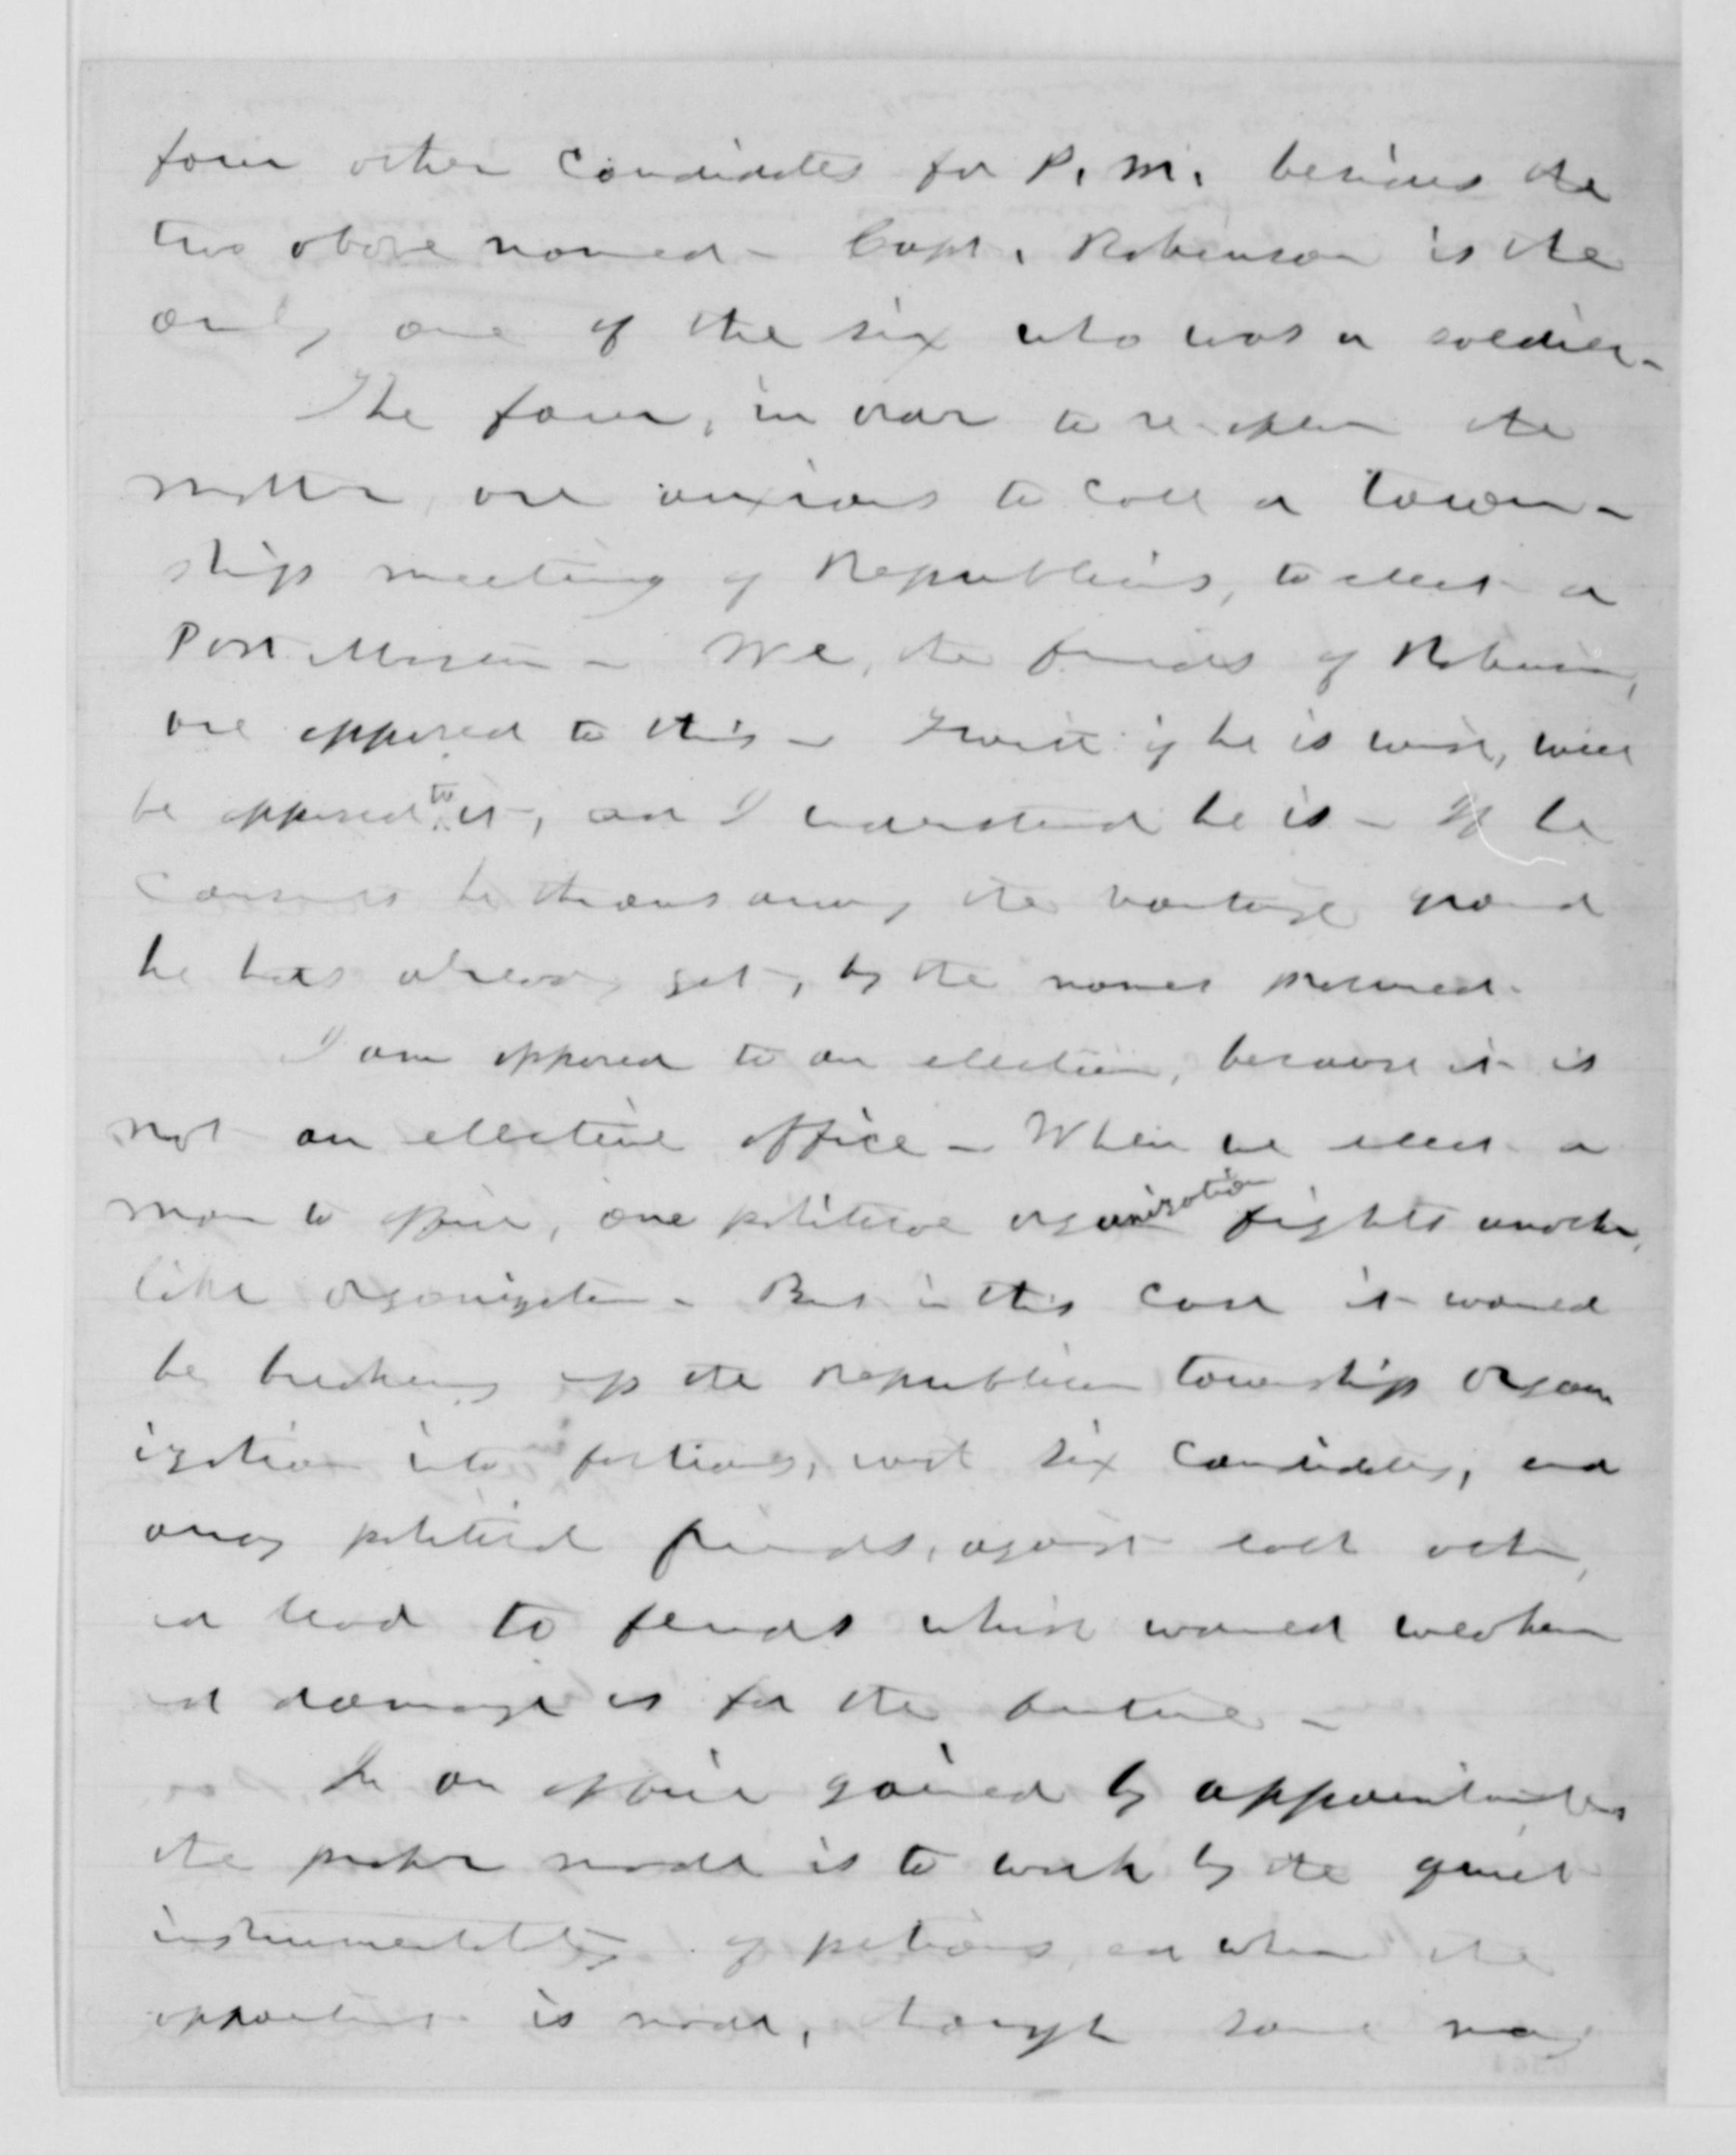 four other candidates for P. M. besides the
two above named - Capt. Robinson is the
only one of the six who was a soldier -
The four, in order to re-open the
matter, are anxious to call a town-
ship meeting of Republicans, to elect a
Post Master - We, the friends of Robinson,
are opposed to this - if he is wise, will
be opposed to it, and I understand he is - If he
consents he throws away the vantage ground
he has already got, by the names procured -
I am opposed to an election, because it is
not an elective office - When we elect a
man to office, one political organization fights another
like organization - But in this case it would
be breaking up the Republican township organ
ization into factions, with six candidates, and
array political friends, against each other,
and lead to feuds which would weaken
and damage us for the future -
In an office gained by appointment
the proper mode is to work by the quiet
instrumentality of petitions, and when the
appointment is made, though some may